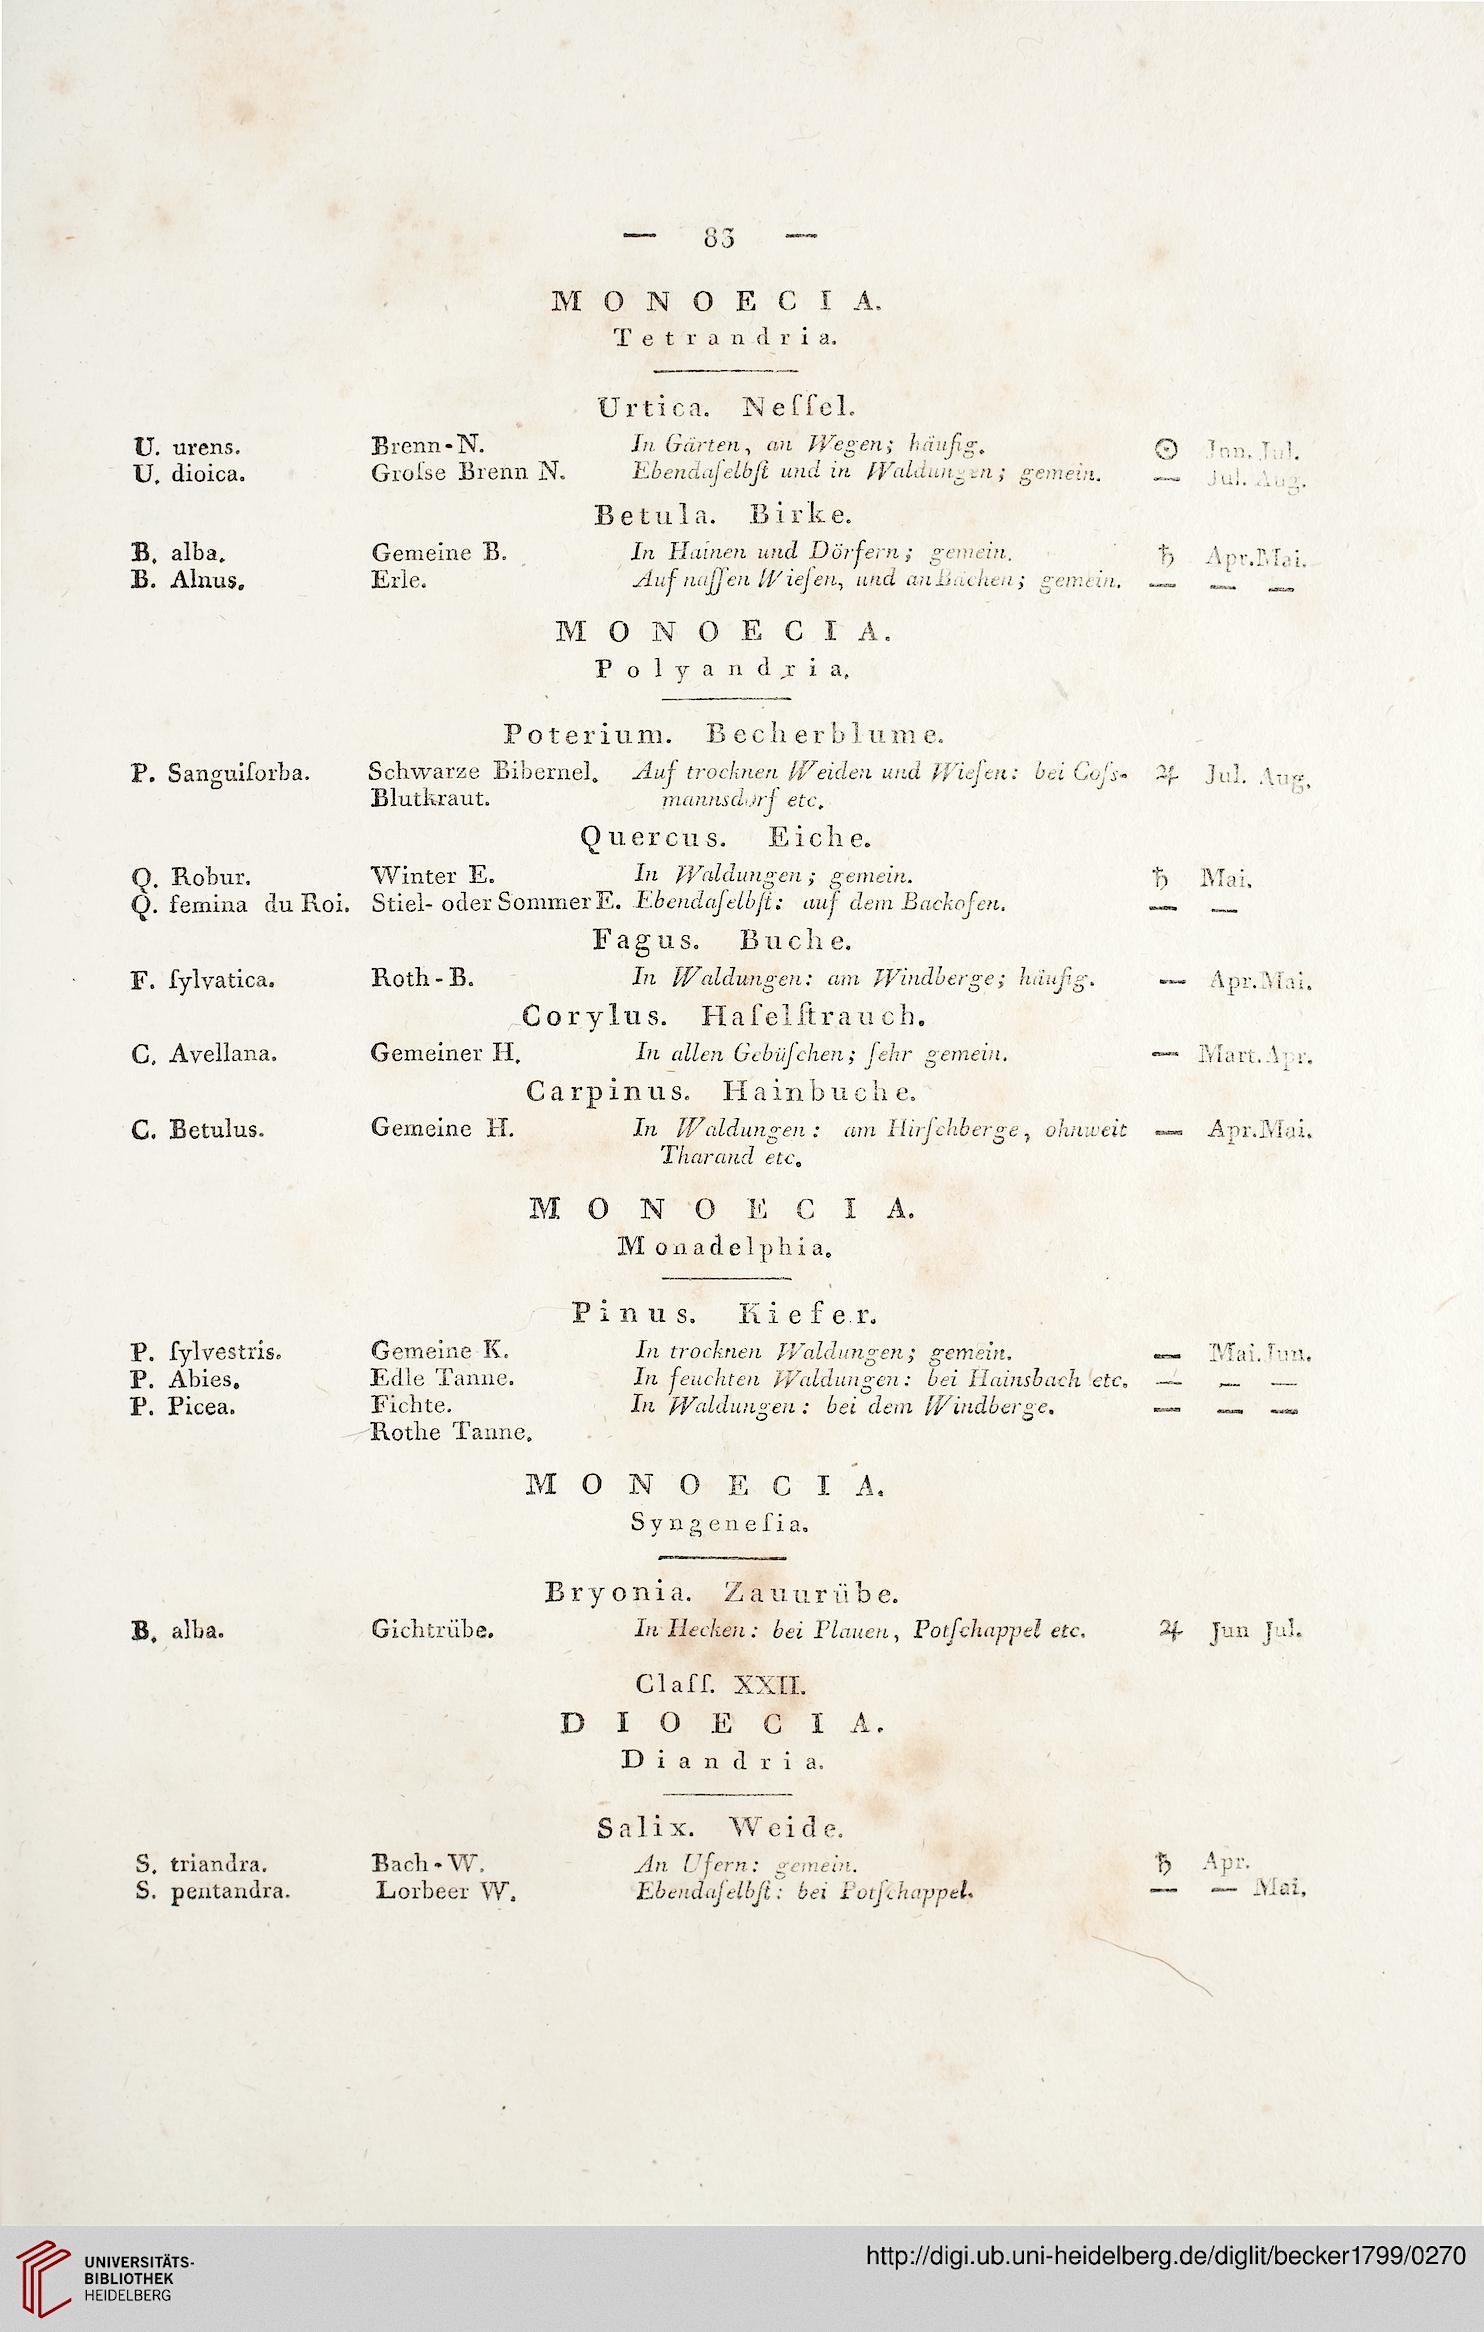 — 83 —
MONOECIA.
Tetrandria.
Urtica. Neſſel.
U. urens. Brenn-N. In Gärten, an Wegen; häufig. ☉ Jun. Jul.
U. dioica. Groſse Brenn N. Ebendaſelbſt und in Waldungen; gemein. — Jul. Aug.
Betula. Birke.
B. alba. Gemeine B. In Hainen und Dörfern; gemein. ♄ Apr. Mai.
B. Alnus. Erle. Auf naſſen Wieſen, und an Bächen; gemein. — — —
MONOECIA.
Polyandria.
Poterium. Becherblume.
P. Sanguiſorba. Schwarze Bibernel. Auf trocknen Weiden und Wieſen: bei Coſs- ♃ Jul. Aug.
Blutkraut. mannsdorf etc.
Quercus. Eiche.
Q. Robur. Winter E. In Waldungen; gemein. ♄ Mai.
Q. femina du Roi. Stiel- oder Sommer E. Ebendaſelbſt: auf dem Backofen. — —
Fagus. Buche.
F. ſylvatica. Roth-B. In Waldungen: am Windberge; häufig. — Apr. Mai.
Corylus. Haſelſtrauch.
C. Avellana. Gemeiner H. In allen Gebüſchen; ſehr gemein. — Mart. Apr.
Carpinus. Hainbuche.
C. Betulus. Gemeine H. In Waldungen: am Hirſchberge, ohnweit — Apr. Mai.
Tharand etc.
MONOECIA.
Monadelphia.
Pinus. Kiefer.
P. ſylvestris. Gemeine K. In trocknen Waldungen; gemein. — Mai. Jun.
P. Abies. Edle Tanne. In feuchten Waldungen: bei Hainsbach etc. — — —
P. Picea. Fichte. In Waldungen: bei dem Windberge. — — —
Rothe Tanne.
MONOECIA.
Syngeneſia.
Bryonia. Zaunrübe.
B. alba. Gichtrübe. In Hecken: bei Plauen, Potſchappel etc. ♃ Jun Jul.
Claſſ. XXII.
DIOECIA.
Diandria.
Salix. Weide.
S. triandra. Bach-W. An Ufern: gemein. ♄ Apr.
S. pentandra. Lorbeer W. Ebendaſelbſt: bei Potſchappel. — — Mai.
UNIVERSITÄTS-
BIBLIOTHEK
HEIDELBERG
http://digi.ub.uni-heidelberg.de/diglit/becker1799/0270